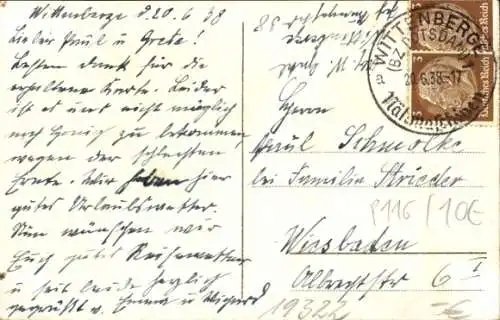 Wittenberge d. 20.6.38
Lieber Paul u. Grete!
Besten Dank für die
erhaltene Karte. Leider
ist es uns nicht möglich
noch Honig zu bekommen
wegen der schlechten
Ernte. Wir haben hier
gutes Urlaubswetter.
Nun wünschen wir
Euch gutes Reisewetter
u. seid beide herzlich
gegrüßt v. Emma u.
Herrn
Paul Schmolke
bei Familie Strieder
Wiesbaden
Albrechtstr 6 I
WITTENBERGE
(BZ. POTSDAM) 1
20.6.38.-17
Nähmaschinen
Deutsches Reich
Deutsches Reich
3
3
P116/10€
19322